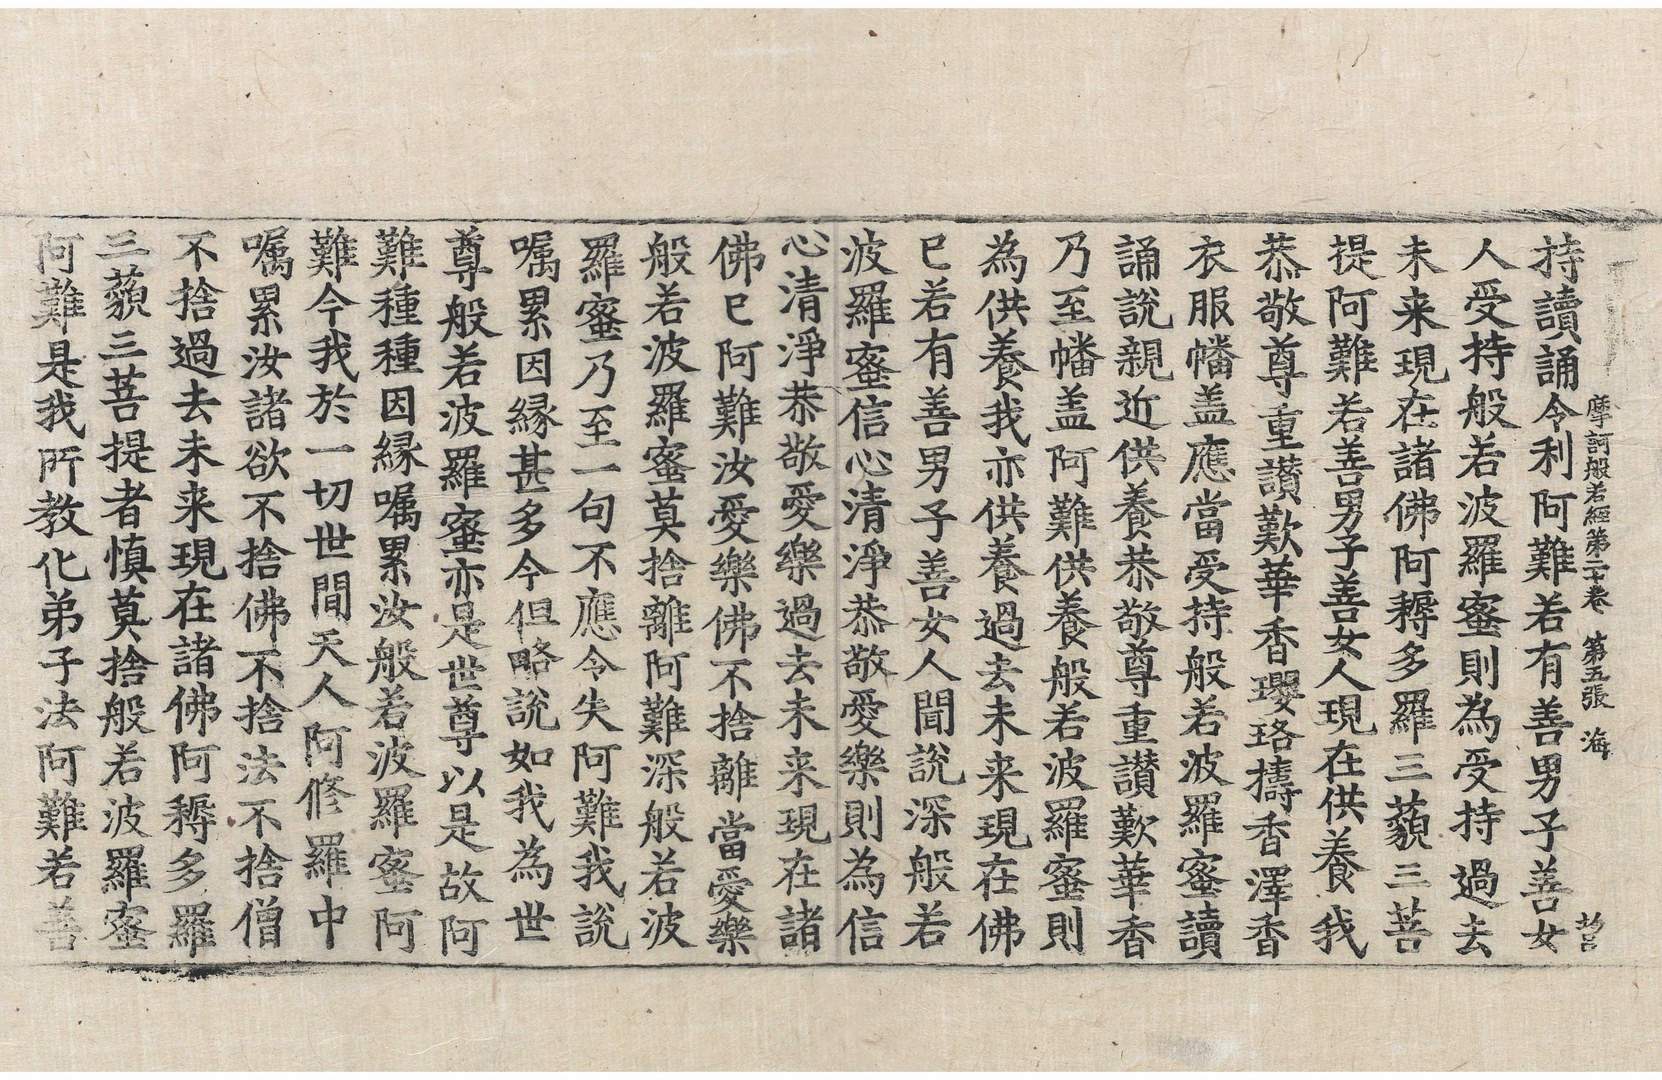 摩訶般若經第二十卷　第五張　海
持讀誦令利阿難若有善男子善女
人受持般若波羅蜜則為受持過去
未来現在諸佛阿耨多羅三藐三菩
提阿難若善男子善女人現在供養我
恭敬尊重讃歎華香瓔珞擣香澤香
衣服幡盖應當受持般若波羅蜜讀
誦說親近供養恭敬尊重讃歎華香
乃至幡盖阿難供養般若波羅蜜則
為供養我亦供養過去未来現在佛
已若有善男子善女人聞說深般若
波羅蜜信心清淨恭敬愛樂則為信
心清淨恭敬愛樂過去未来現在諸
佛已阿難汝愛樂佛不捨離當愛樂
般若波羅蜜莫捨離阿難深般若波
羅蜜乃至一句不應令失阿難我說
嘱累因緣甚多今但略說如我為世
尊般若波羅蜜亦是世尊以是故阿
難種種因緣嘱累汝般若波羅蜜阿
難今我於一切世間天人阿修羅中
嘱累汝諸欲不捨佛不捨法不捨僧
不捨過去未来現在諸佛阿耨多羅
三藐三菩提者慎莫捨般若波羅蜜
阿難是我所教化弟子法阿難若善